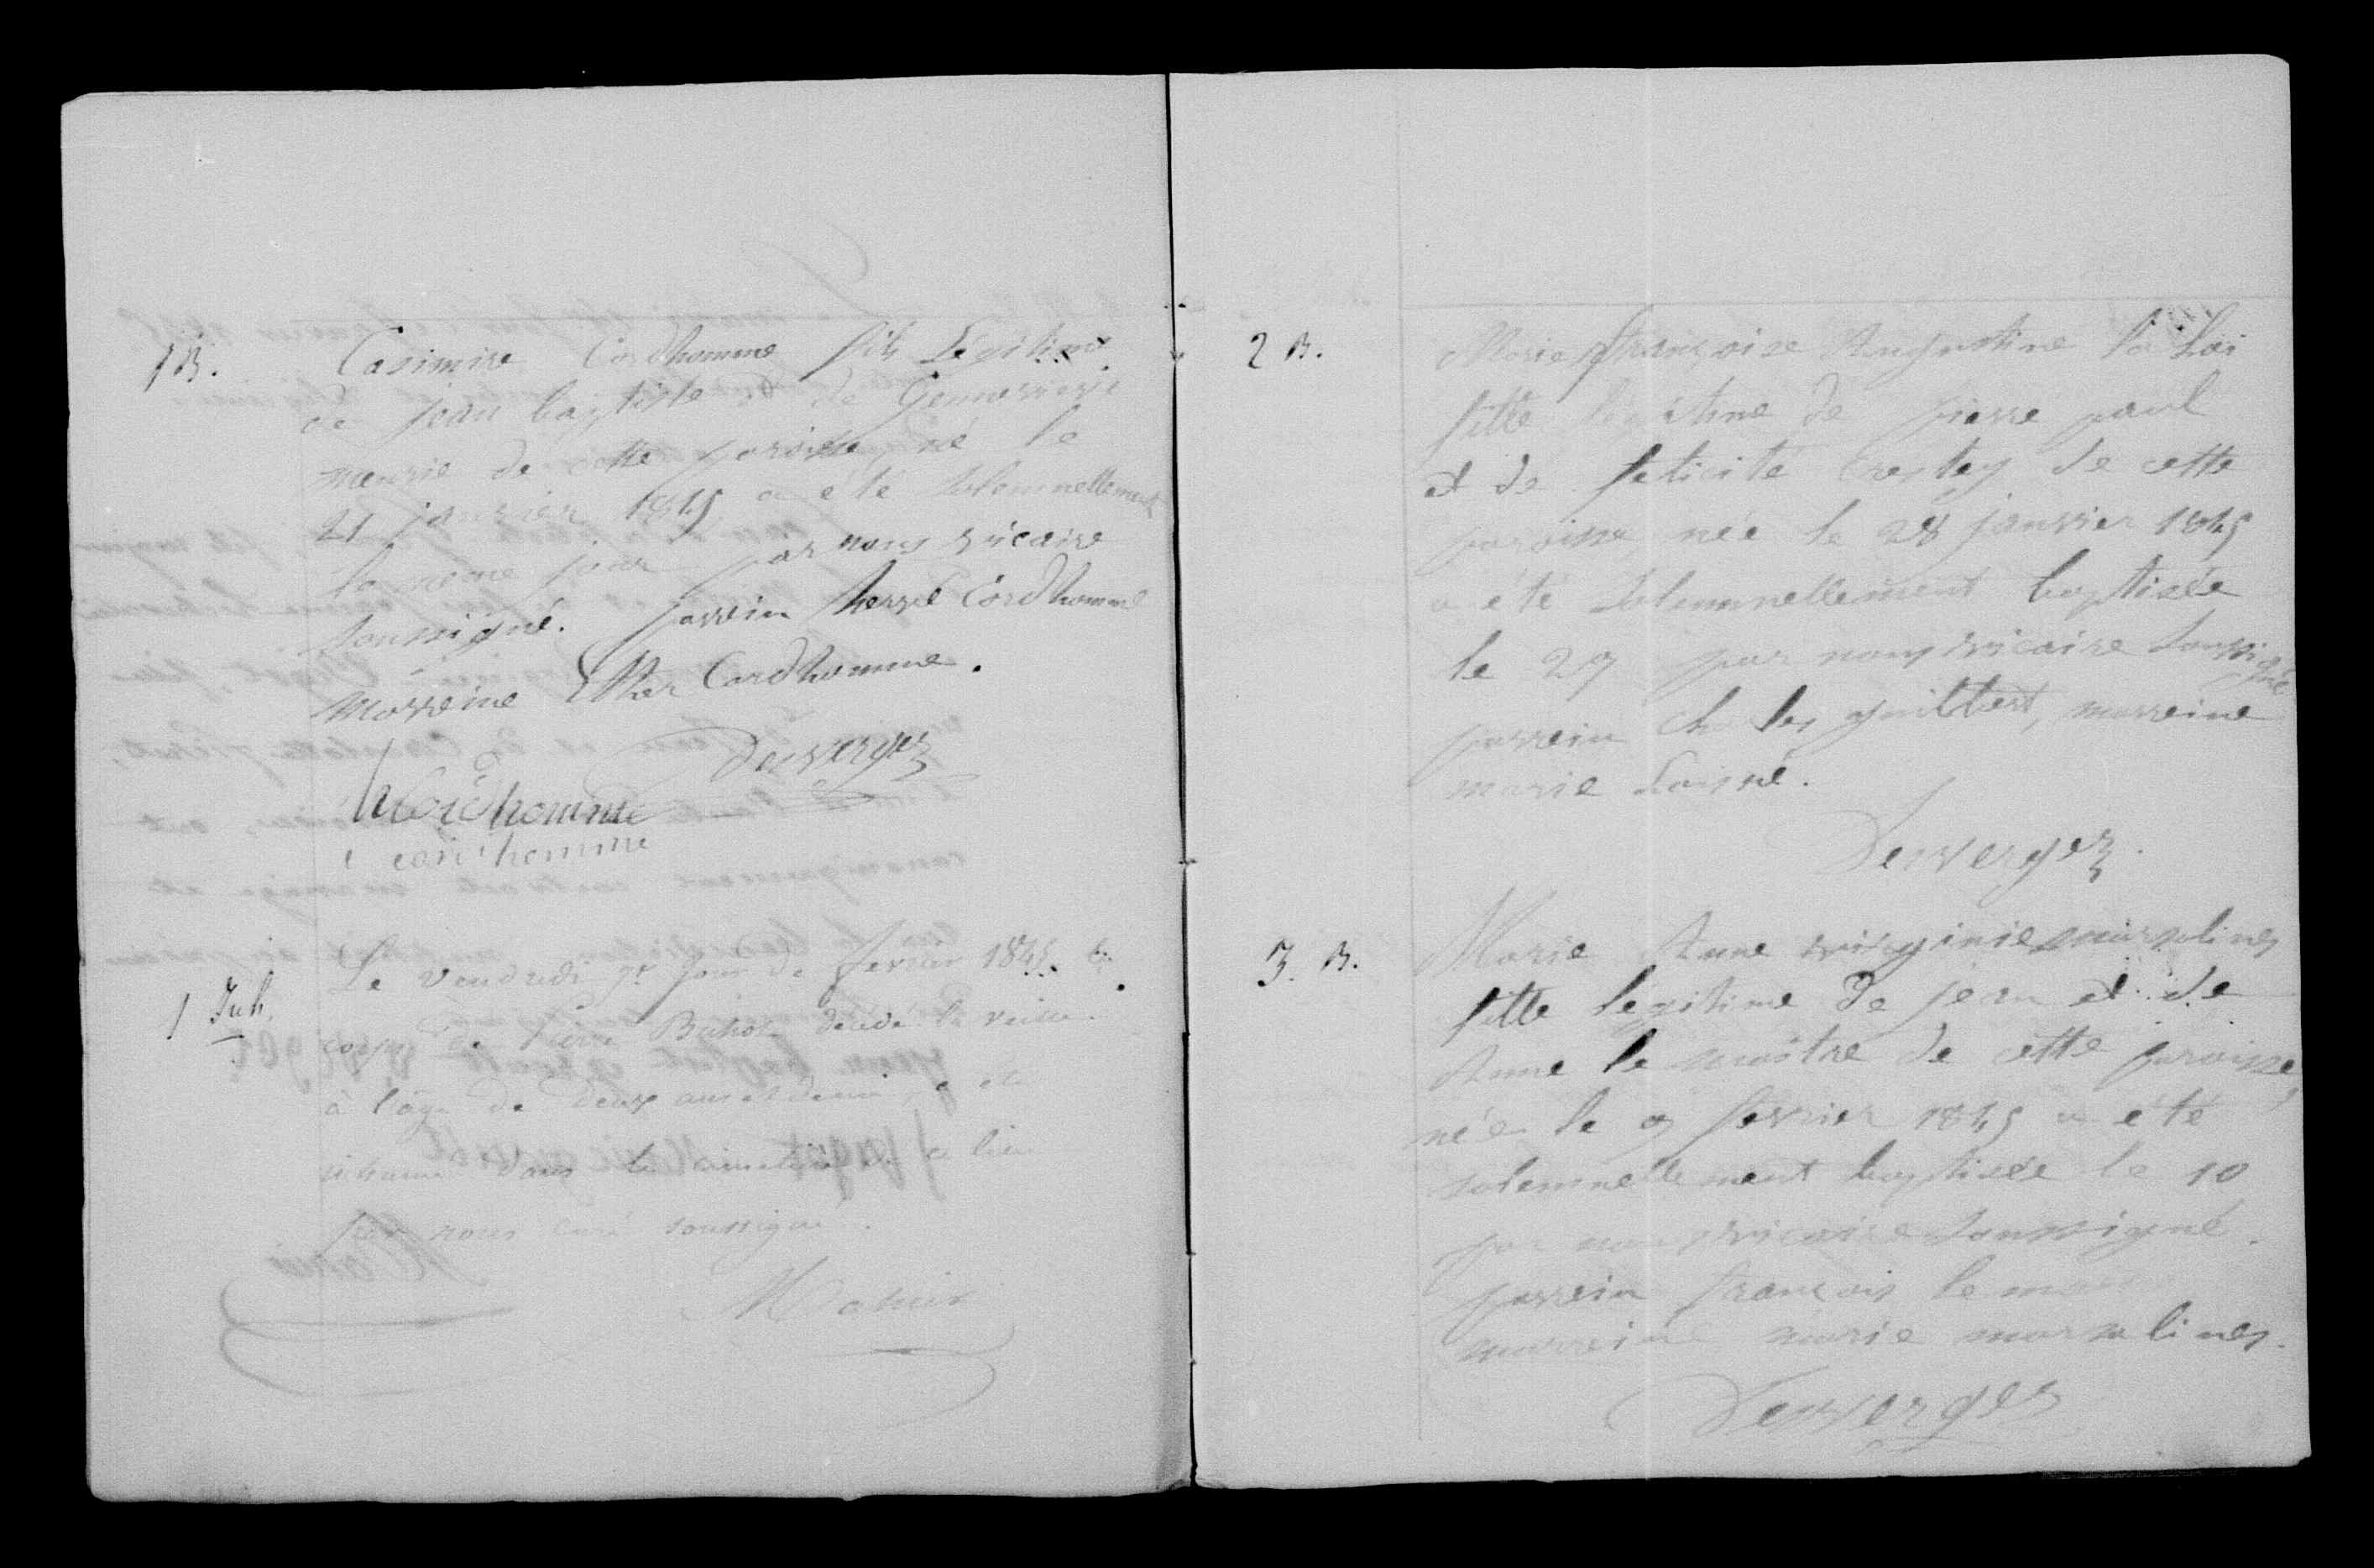 1 B.
Casimire Cordhomme fils Légitime
de jean baptiste et de Gennevieve
meurie de cette paroisse, né le
21 janvier 1845 a été solemnellement
le même jour par nous vicaire
soussigné. parrein Cordhomme
marreine Esther Cordhomme.
Desverges
Cordhomme
e cordhomme
1 Inh.
Le vendredi 7e jour de fevrier 1845. le
corps de Pierre Buhot décédé la veille
à l'âge de deux ans et demi, a été
inhumé dans le cimetière de ce lieu
par nous curé soussigné.
Mahier
2 B.
Marie françoise Augustine la Loi
fille légitime de pierre paul
et de felicité Crestey de cette
paroisse, née le 28 janvier 1845
a été solemnellement baptisée
le 29 par nous vicaire soussigné
parrein marreine
marie Loisné.
Desverges.
3. B.
Marie Anne virginie marsolines
fille legitime de jean et de
Anne le maître de cette paroisse,
née le 9 fevrier 1845 a été
solemnellement baptisée le 10
par nous vicaire soussigné.
parrein françois le
marreine marie marsolines.
Desverges